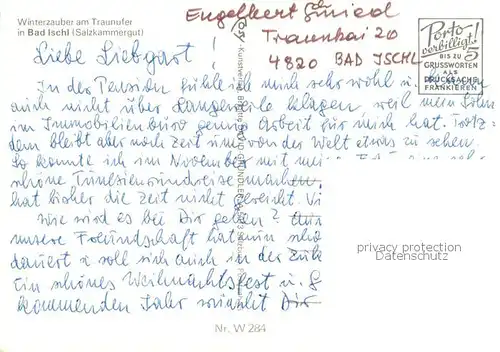 Winterzauber am Traunufer
in Bad Ischl (Salzkammergut)
Engelbert Schmied
Traunkai 20
4820 BAD ISCHL
Porto
verbilligt!
BIS ZU
5
GRUSSWORTEN
ALS
DRUCKSACHE
FRANKIEREN
Liebe Liebgart!
In der Pension fühle ich mich sehr wohl u.
auch nicht über Langeweile klagen, weil mein Sohn
im Immobilienbüro genug Arbeit für mich hat. Trotz-
dem bleibt aber noch Zeit und von der Welt etwas zu sehen.
So konnte ich im November mit
schöne Tunesienrundreise machen.
hat bisher die Zeit nicht gereicht.
Wie wird es bei Dir gehen?
unsere Freundschaft hat nun
dauert u soll sich auch in der
Ein schönes Weihnachtsfest u.
kommenden Jahr wünscht Dir
privacy protection
Datenschutz
Nr. W 284